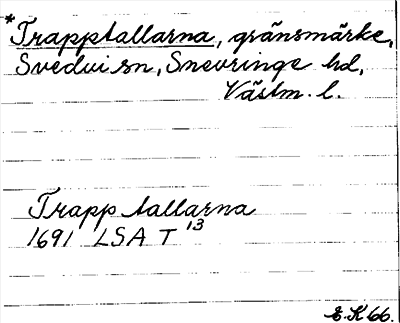 *Trapptallarna, gränsmärke,
Svedvi sn, Snevringe hd,
Västm. l.
Trapp tallarna
1691 LSA T 13
E.K 66.